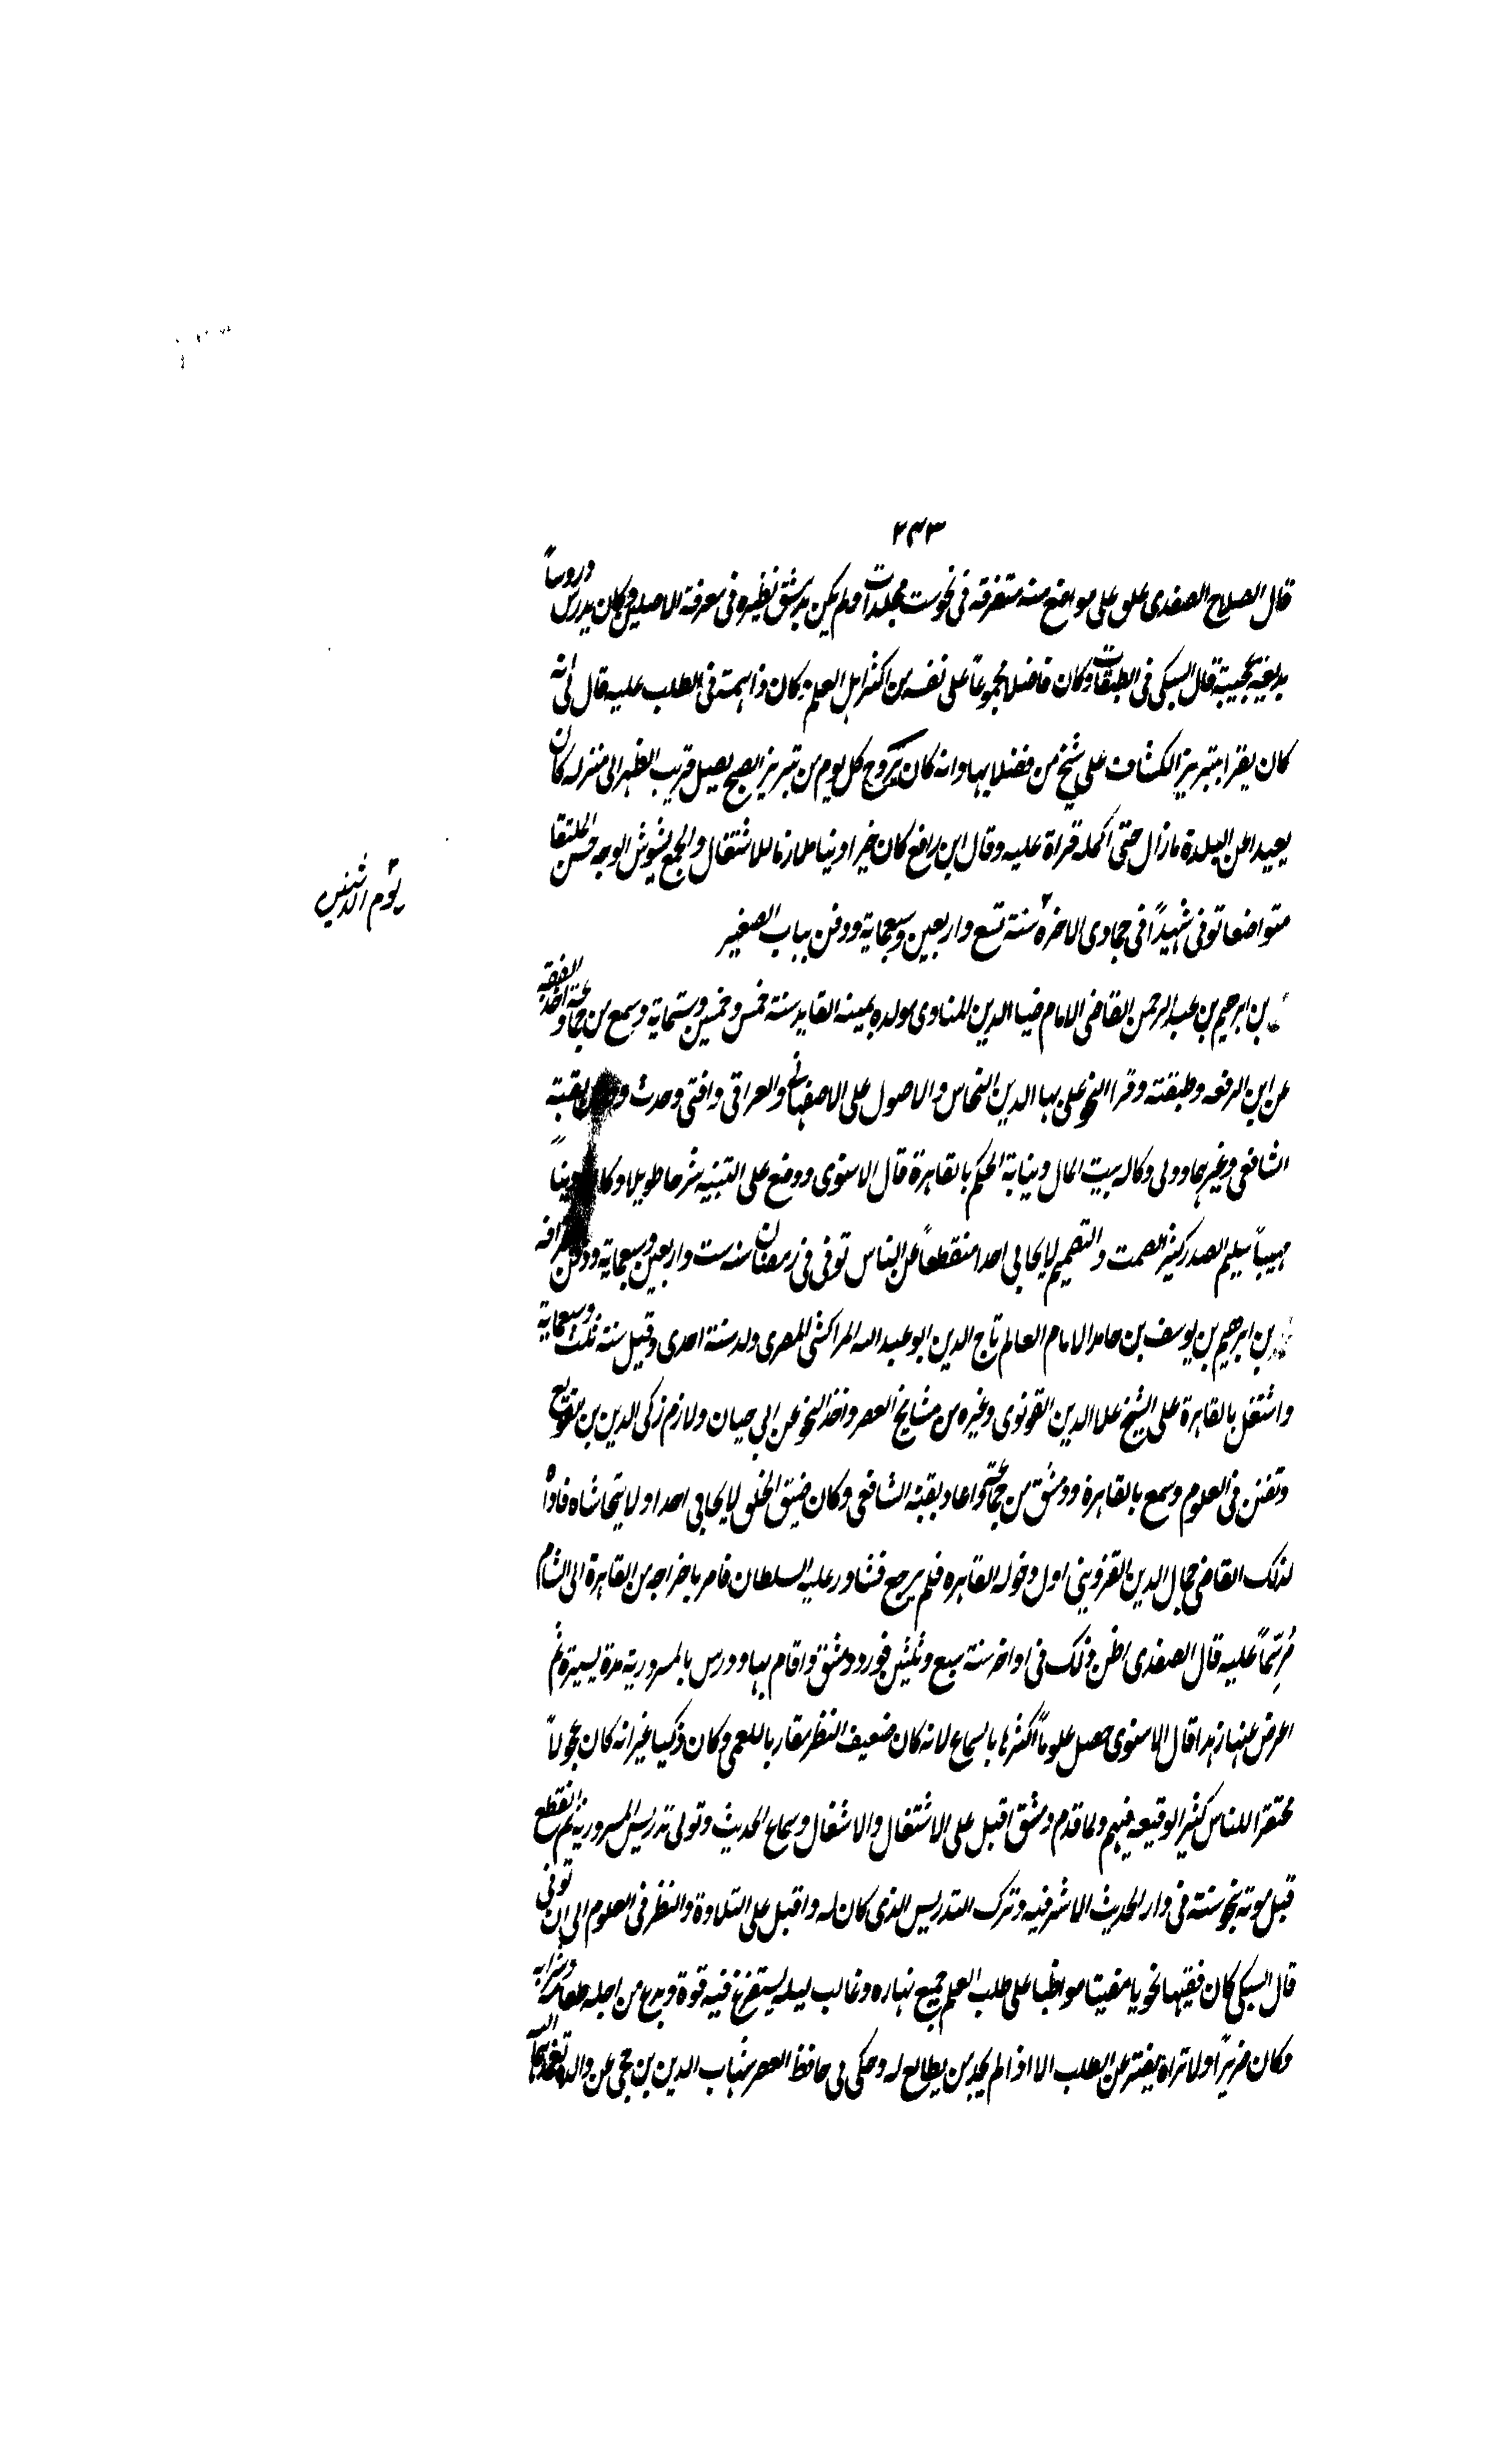 ٢٣٣
قال الصلاح الصفدى علق على مواضع منه متفرقه فى نحو ست مجلدات ولم يكن بدمشق نظيره فى معرفة الاصلين وكان يدرس دروساً
بديعة عجيبة قال السبكى فى الطبقات وكان فاضلا مجموعاً على نفسه من اكثر اهل العلم وكان ذا همة فى الطلب عليه قال لى انه
كان يقرا بتبريز الكشاف على شيخ من فضلايها وانه كان يروح كل يوم من تبريز الصبح يصل قريب الظهر الى منزله كان
بعيدا عن البلدة مازال حتى اكمله قراة عليه وقال ابن رافع كان خيرا دينا ملازما للاشتغال والجمع بشوش الوجه حسن الملتقا
متواضعا توفى شهيداً فى جمادى الاخرة سنة تسع واربعين وسبعماية ودفن بباب الصغير
يوم الاثنين
بن ابرهيم بن عبد الرحمن القاضى الامام ضيا الدين المناوى مولده بمينه القايد سنة خمس وخمسين وستماية وسمع من جماعة واخذ الفقه
عن ابن الرفعه وطبقته وقرا النحو على بها الدين النحاس والاصول على الاصفهانى والعراقى وافتى وحدث ودرس بقبة
الشافعى وغيرها وولى وكاله بيت المال ونيابة الحكم بالقاهرة قال الاسنوى ووضع على التنبيه شرحا طويلا وكان ديناً
مهيباً سليم الصدر كثير الصمت والتصميم لا يحابى احدا منقطعاً عن الناس توفى فى رمضان سنه ست واربعين وسبعماية ودفن
بن ابرهيم بن يوسف بن حامد الامام العالم تاج الدين ابو عبد الله المراكشى المصرى ولد سنة احدى وقيل سنة ثلث وسبعماية
واشتغل بالقاهرة على الشيخ علا الدين القونوى وغيره من مشايخ العصر واخذ النحو عن ابى حيان ولازم زكى الدين بن
وتفنن فى العلوم وسمع بالقاهرة ودمشق من جماعة واعاد بقبة الشافعى وكان ضيق الخلق لا يحابى احدا ولا يتحاشاه فاذاه
لذلك القاضى جمال الدين القزوينى اول دخوله القاهره فلم يرجع فشاور عليه السلطان فامر باخراجه من القاهرة الى الشام
مُرسّماً عليه قال الصفدى اظن ذلك فى اواخر سنة سبع وثلثين فورد دمشق واقام بها ودرس بالمسرورية مدة يسيرة ثم
اعرض عنها زهدا قال الاسنوى حصل علوماً اكثرها بالسماع لانه كان ضعيف النظر مقاربا للعمى وكان ذكيا غير انه كان عجولاً
محتقرا للناس كثير الوقيعه فيهم ولما قدم دمشق اقبل على الاشتغال والاشغال وسماع الحديث وتولى تدريس المسرورية ثم انقطع
قبل موته بنحو سنة فى دار الحديث الاشرفيه وترك التدريس الذى كان له واقبل على التلاوة والنظر فى العلوم الى ان توفى
قال السبكى كان فقيها نحويا مفتيا مواظبا على طلب العلم جميع نهاره وغالب ليله يستفرغ فيه قوة ويدع من اجله طعامه وشرابه
وكان ضريراً ولا تراه يفتر عن الطلب الا اذا لم يجد من يطالع له وحكى لى حافظ العصر شهاب الدين بن حجى عن والده